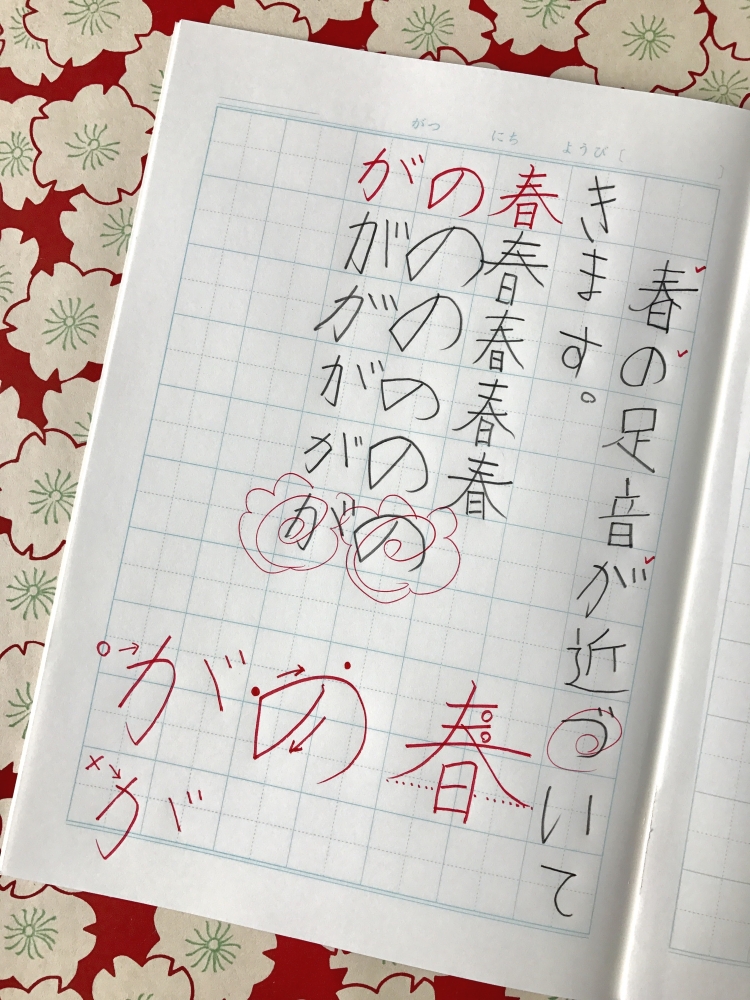 がつ にち ようび [ ]
春の足音が近づいて
きます。
春春春春春
ののののののの
がががががが
春
の
が
が